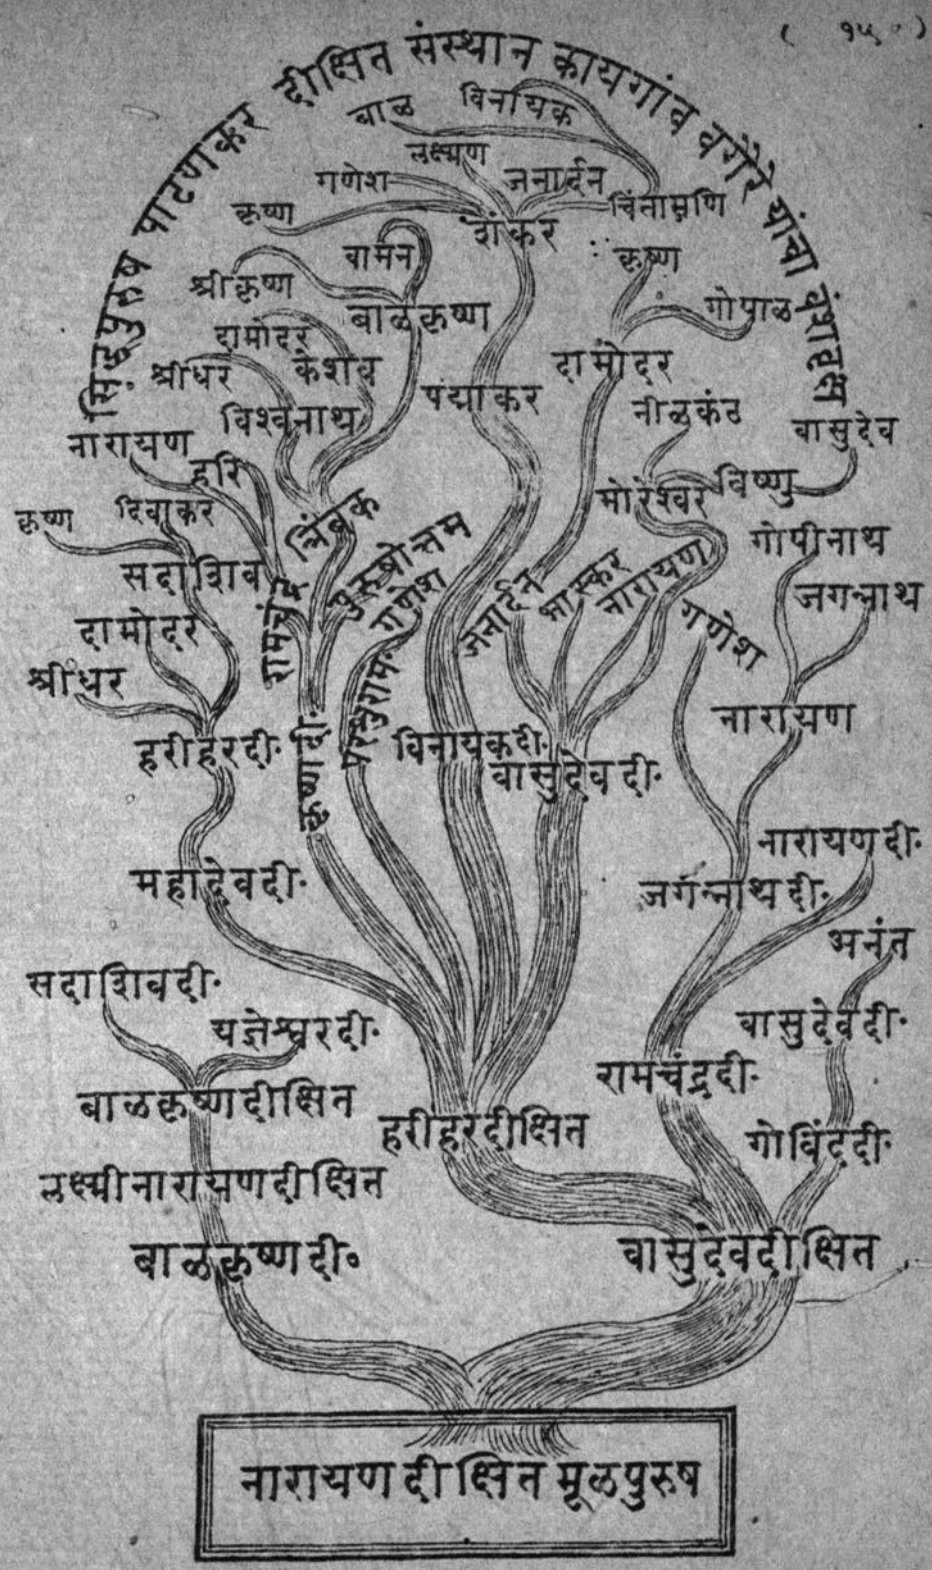 ( १५० )
सिद्धपुरुष पाटणकर दीक्षित संस्थान कायगांव वगैरे यांचा वंशवृक्ष
बाळ
विनायक
लक्ष्मण
गणेश
जनार्दन
कृष्ण
चिंतामणि
शंकर
वामन
कृष्ण
श्रीकृष्ण
बाळकृष्ण
गोपाळ
दामोदर
श्रीधर
केशव
दामोदर
पद्माकर
विश्वनाथ
नीळकंठ
वासुदेव
नारायण
हरि
विष्णु
मोरेश्वर
कृष्ण
दिवाकर
त्रिंबक
पुरुषोत्तम
गोपीनाथ
सदाशिव
रामचंद्र
गणेश
जनार्दन
भास्कर
नारायण
जगन्नाथ
दामोदर
गणेश
श्रीधर
परशुराम
नारायण
हरीहरदी.
कृष्णदी.
विनायकदी.
वासुदेवदी.
नारायणदी.
महादेवदी.
जगन्नाथदी.
अनंत
सदाशिवदी.
यज्ञेश्वरदी.
वासुदेवदी.
रामचंद्रदी.
बाळकृष्णदीक्षित
हरीहरदीक्षित
गोविंददी.
लक्ष्मीनारायणदीक्षित
बाळकृष्णदी०
वासुदेवदीक्षित
नारायण दीक्षित मूळपुरुष